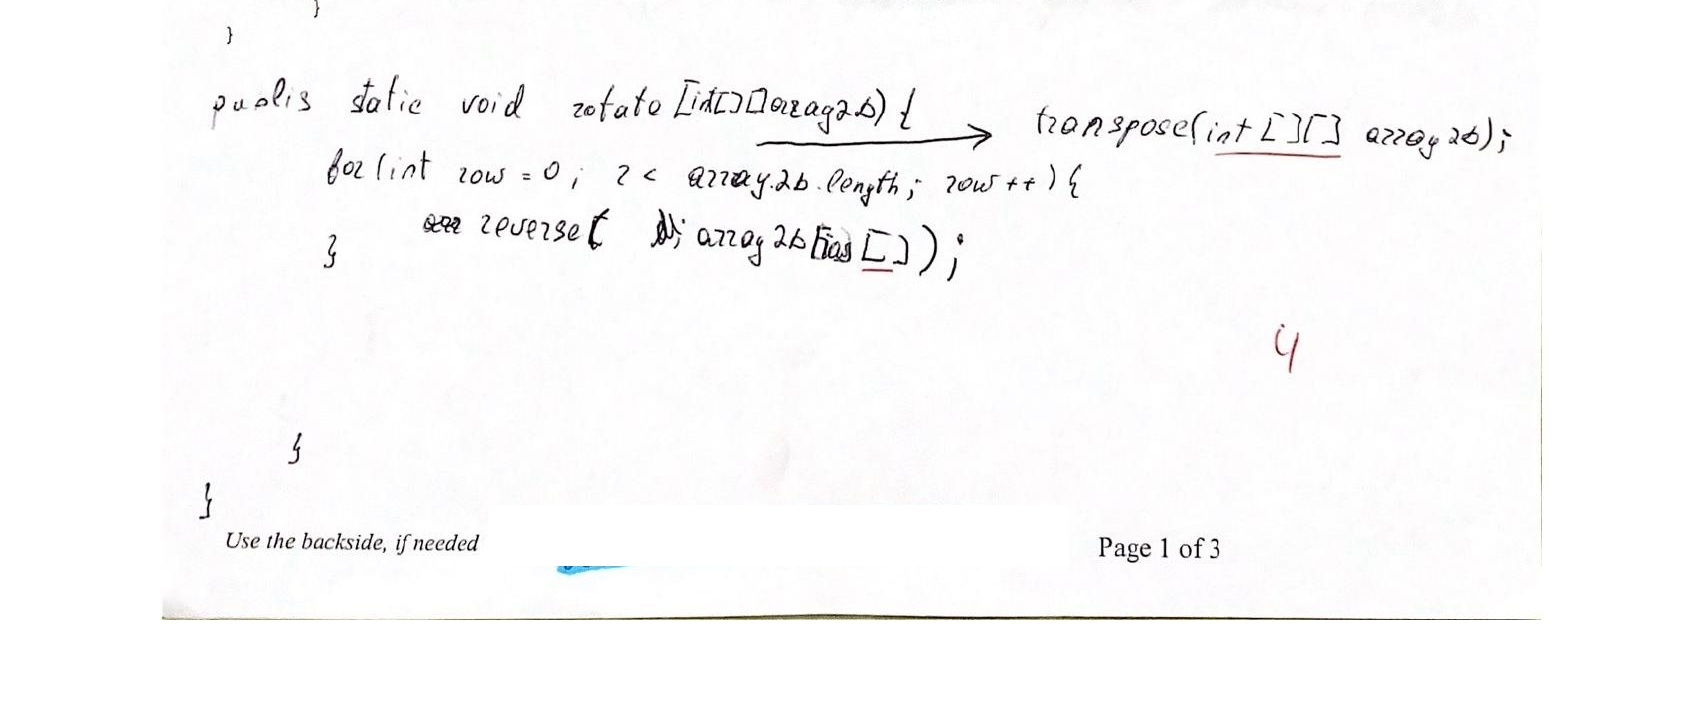 }
}
public static void rotate [int[][]array2b) { transpose(int [][] array2b);
for (int row = 0; r < array2b.length; row++) {
reverse( array2b [] );
}
4
}
}
Use the backside, if needed Page 1 of 3